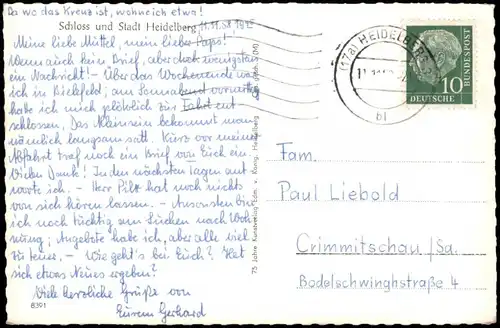 Da wo das Kreuz ist, wohne ich etwa!
Schloss und Stadt Heidelberg
11.11.58
Meine liebe Muttel, mein lieber Papa!
Wenn auch kein Brief, aber doch wenigstens
ein Nachricht! – Über das Wochenende war
ich in Bielefeld; am Sonnabend vormittag
hatte ich mich plötzlich zur Fahrt ent
schlossen. Das Kleinsein bekommt man
nämlich langsam satt. Kurz vor meiner
Abfahrt traf noch ein Brief von Euch ein.
Vielen Dank! In den nächsten Tagen ant
worte ich. – Herr Pilz hat noch nichts
von sich hören lassen. – Ansonsten bin
ich noch tüchtig am Suchen nach Woh
nung; Angebote habe ich, aber alle viel
zu teuer. – Wie geht's bei Euch? Hat
sich etwas Neues ergeben?
Viele herzliche Grüße von
Eurem Gerhard
8391
75 Jahre Kunstverlag Edm. v. König, Heidelberg
(17a) HEIDELBERG
bl
10
DEUTSCHE
BUNDESPOST
Fam.
Paul Liebold
Crimmitschau/Sa.
Bodelschwinghstraße 4